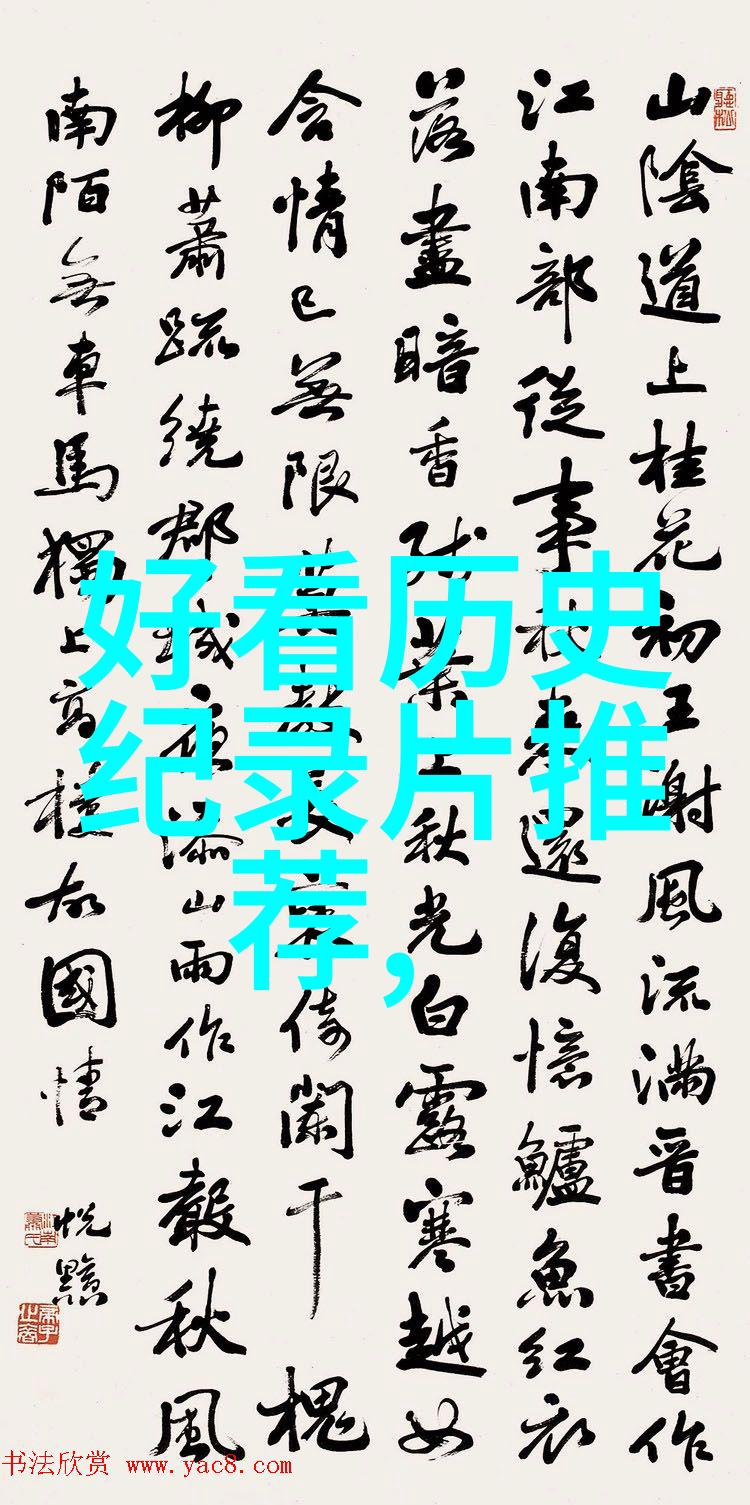 山陰道上桂花初王謝風流滿晉書會作
江南部從事秋來還復憶鱸魚紅衣
落盡暗香殘葉上秋光白露寒越女
含情已無限莫教長袖倚闌干槐
柳蕭疏繞郡城夜添山雨作江聲秋風
南陌無車馬獨上高樓故國情
好看历史
纪录片推
荐，
书法欣赏 www.yac8.com